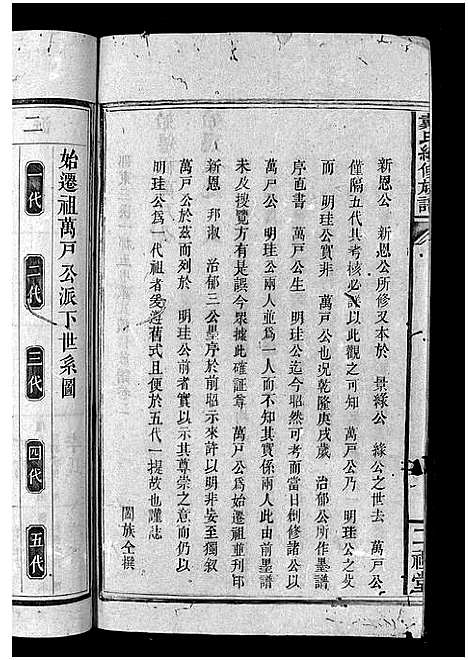 氏續修族譜
二禮堂
新恩公 新恩公所修又本於 景緣公 緣公之世去 萬戸公
僅隔五代其考核必詳以此觀之可知 萬戸公乃 明珪公之父
而 明珪公實非 萬戸公也况乾隆庚戌歲 治郁公所作墨譜
序直書 萬戸公生 明珪公迄今昭然可考因當日創修諸公以
萬戸公 明珪公兩人並爲一人而不知其實係兩人此或由前墨譜
未及搜覽方有是誤今眾據此確証尊 萬戸公爲始遷祖並刊印
新恩 邦淑 治郁三公墨序於前昭示來許以明非妄至獨叙
萬戸公於兹而列於 明珪公前者實以示其尊崇之意而仍以
明珪公爲一代祖者爰遵舊式且便於五代一提故也謹志
闔族仝撰
始遷祖萬戸公派下世系圖
二
一代
二代
三代
四代
五代